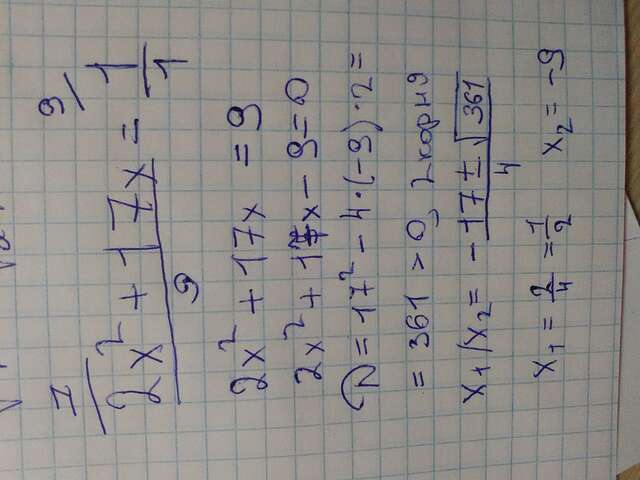 (2x² + 17x)/9 = 1/1 9/
2x² + 17x = 9
2x² + 17x - 9 = 0
D = 17² - 4·(-9)·2 =
= 361 > 0, 2 корня
x₁/x₂ = (-17 ± √361)/4
x₁ = 2/4 = 1/2 x₂ = -9